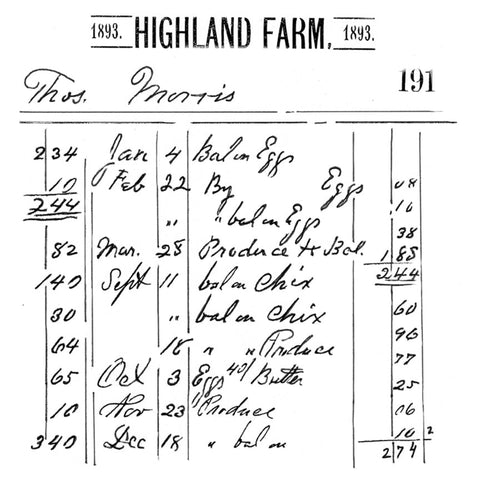 1893. HIGHLAND FARM, 1893.
191
Thos. Morris
234 Jan 4 Bal on Eggs
10 Feb 22 By Eggs 08
244 " " bal on Eggs 10
38
82 Mar. 28 Produce & Bal. 188
140 Sept 11 bal on Chix 244
30 " bal on Chix 60
64 18 " " Produce 96
77
65 Oct 3 Eggs 40/ Butter 25
10 Nov 23 " Produce 06
340 Dec 18 " bal on 10 2
274